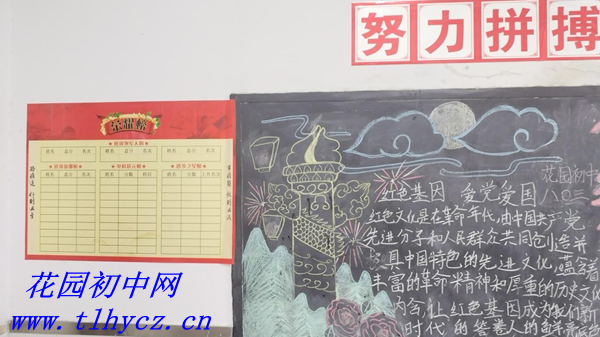 努力拼搏
荣耀榜
姓名 总分 名次 姓名 总分 名次
花园初中
八〇三
红色基因 爱党爱国
红色文化是在革命年代,由中国共产党
先进分子和人民群众共同创造并
具中国特色的先进文化,蕴含着
丰富的革命精神和厚重的历史文化
内涵,让红色基因成为我们新
时代的答卷人的鲜亮底色
花园初中网
www.tlhycz.cn